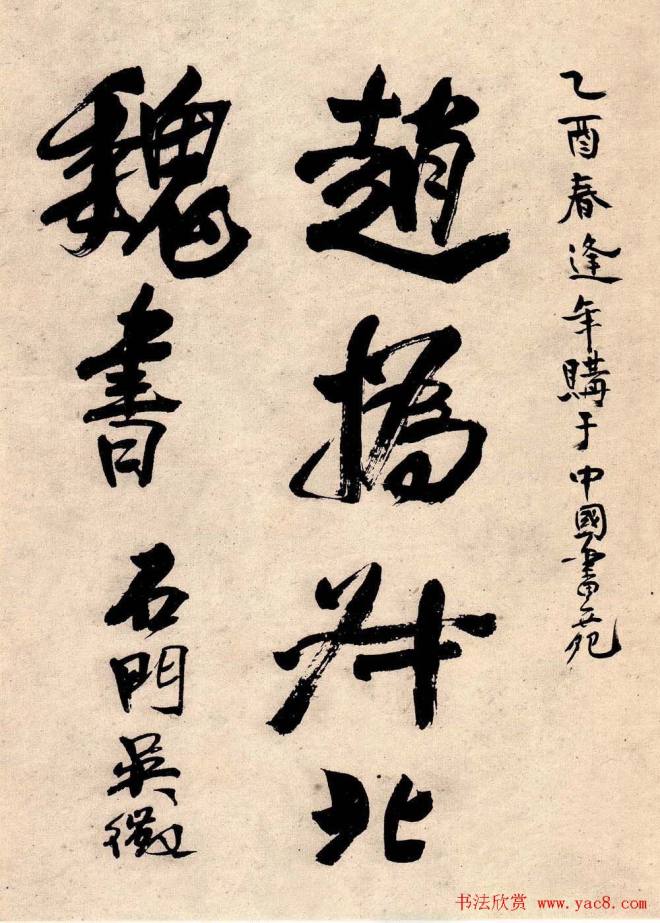 乙酉春逢年購于中國畫苑
趙撝叔北
魏書 石門吳徵
书法欣赏 www.yac8.com